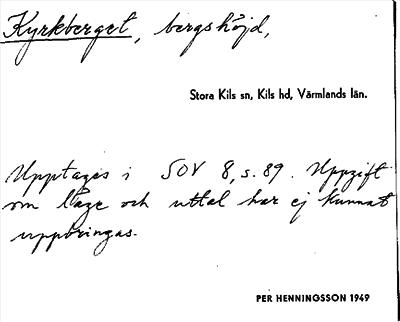 Kyrkberget, bergshöjd,
Stora Kils sn, Kils hd, Värmlands län.
Upptages i SOV 8, s. 89. Uppgift
om läge och uttal har ej kunnat
uppbringas.
PER HENNINGSSON 1949